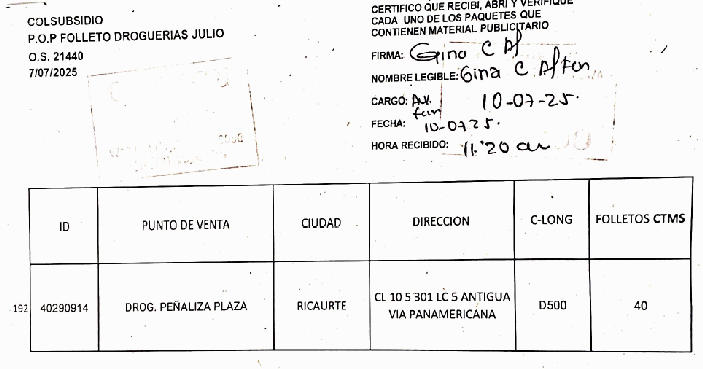 COLSUBSIDIO
P.O.P FOLLETO DROGUERIAS JULIO
O.S. 21440
7/07/2025
CERTIFICO QUE RECIBI, ABRI Y VERIFIQUE
CADA UNO DE LOS PAQUETES QUE
CONTIENEN MATERIAL PUBLICITARIO
FIRMA: Gina C
NOMBRE LEGIBLE: Gina C
CARGO: 10-07-25.
FECHA: 10-0725.
HORA RECIBIDO: 11:20 am
ID PUNTO DE VENTA CIUDAD DIRECCION C-LONG FOLLETOS CTMS
192 40290914 DROG. PEÑALIZA PLAZA RICAURTE CL 10 5 301 LC 5 ANTIGUA D500 40
VIA PANAMERICANA